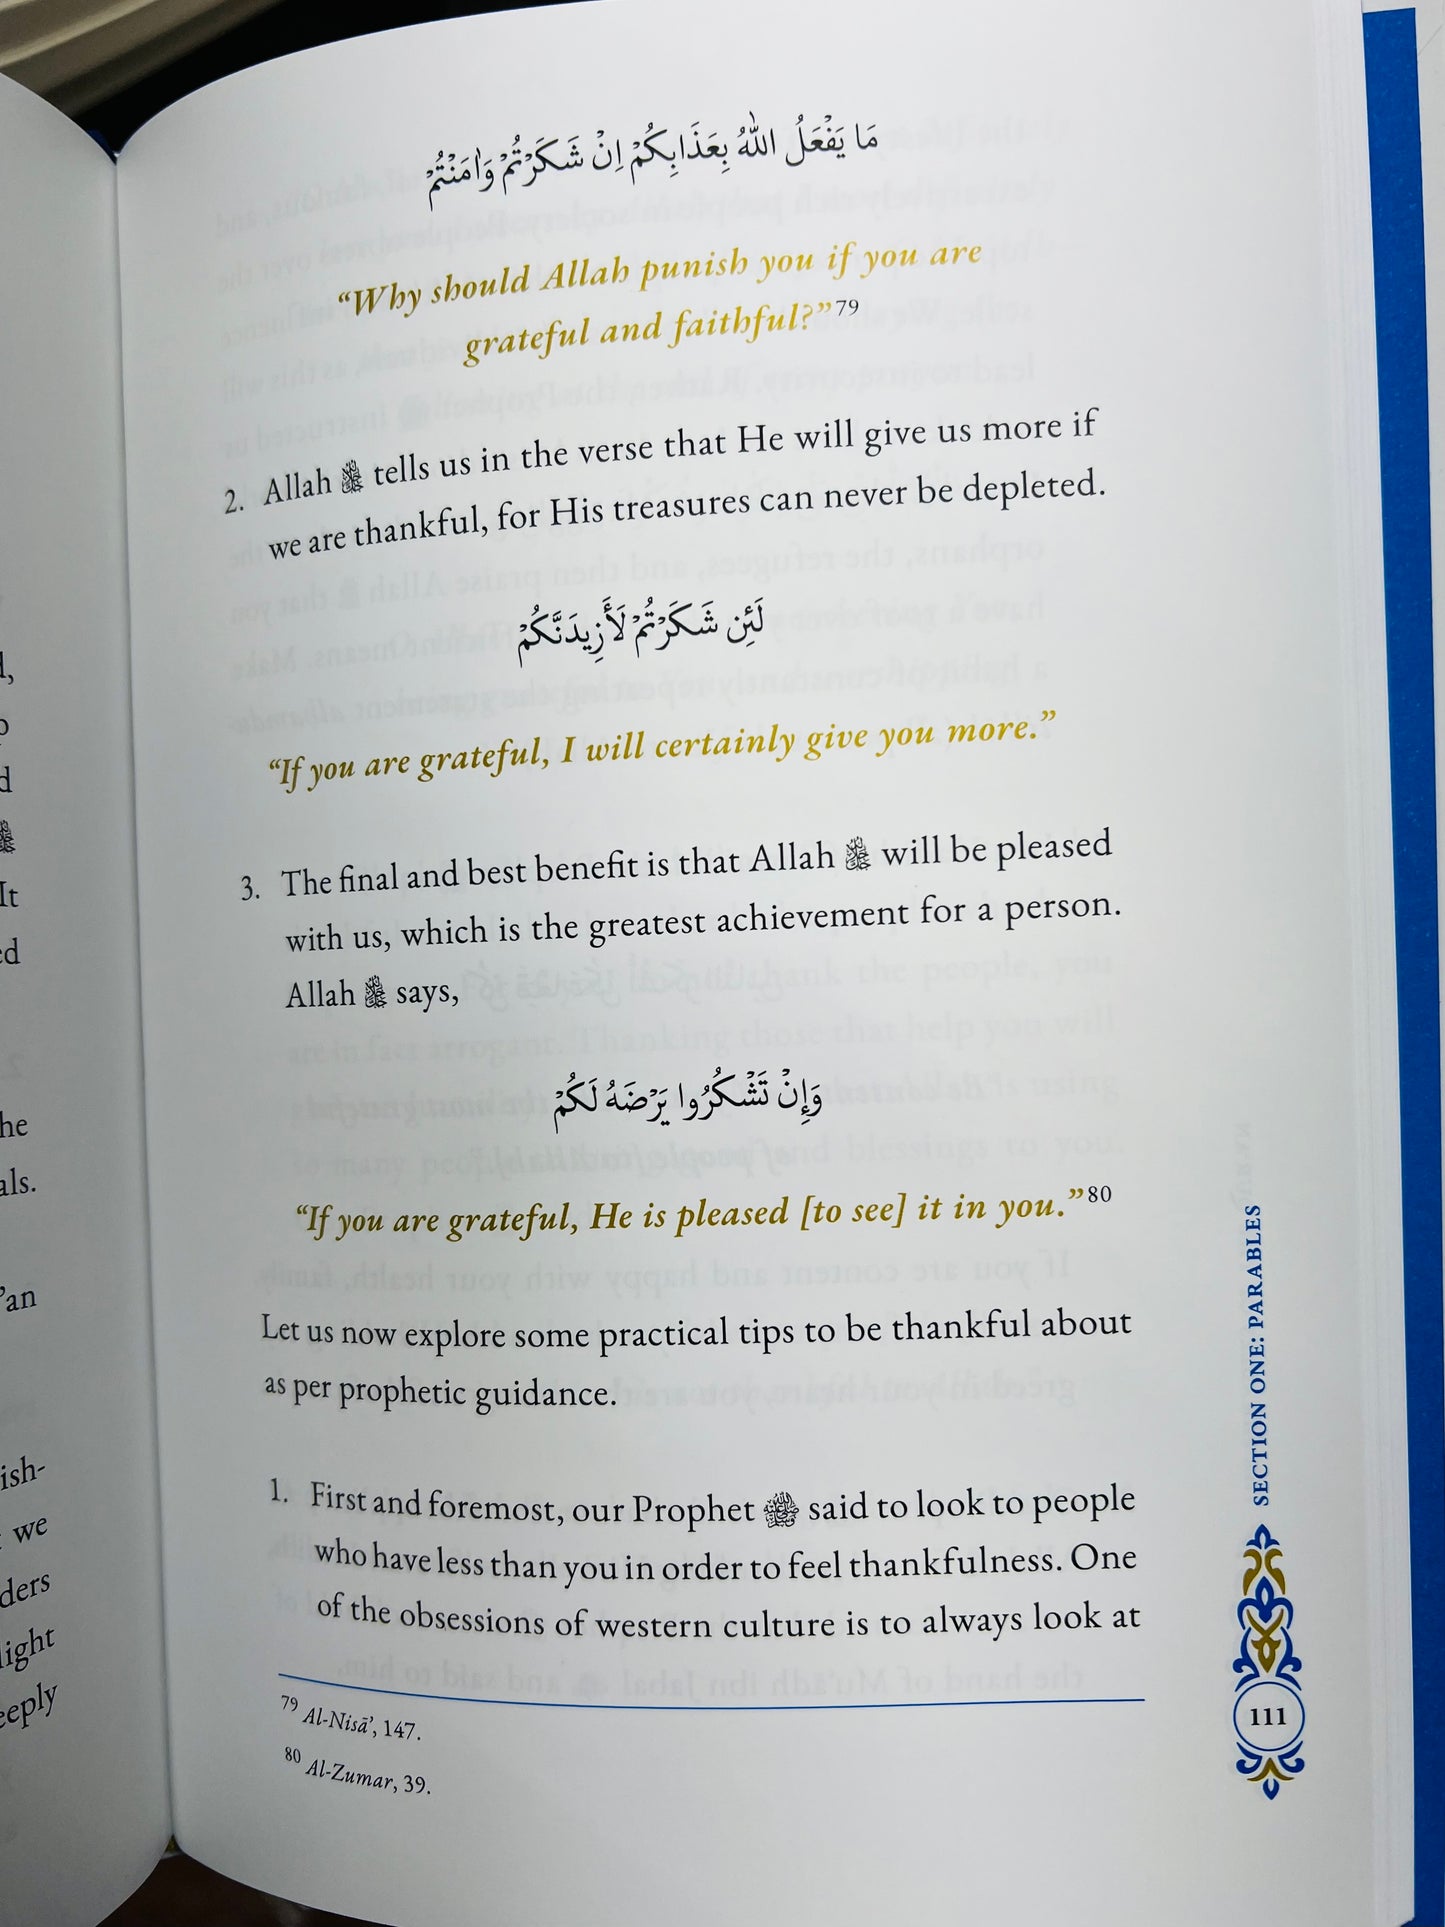 مَا يَفْعَلُ اللّٰهُ بِعَذَابِكُمْ اِنْ شَكَرْتُمْ وَاٰمَنْتُمْ
“Why should Allah punish you if you are
grateful and faithful?”79
2. Allah ﷻ tells us in the verse that He will give us more if
we are thankful, for His treasures can never be depleted.
لَئِن شَكَرْتُمْ لَأَزِيدَنَّكُمْ
“If you are grateful, I will certainly give you more.”
3. The final and best benefit is that Allah ﷻ will be pleased
with us, which is the greatest achievement for a person.
Allah ﷻ says,
وَإِنْ تَشْكُرُوا يَرْضَهُ لَكُمْ
“If you are grateful, He is pleased [to see] it in you.”80
Let us now explore some practical tips to be thankful about
as per prophetic guidance.
1. First and foremost, our Prophet ﷺ said to look to people
who have less than you in order to feel thankfulness. One
of the obsessions of western culture is to always look at
79 Al-Nisā’, 147.
80 Al-Zumar, 39.
SECTION ONE: PARABLES
111